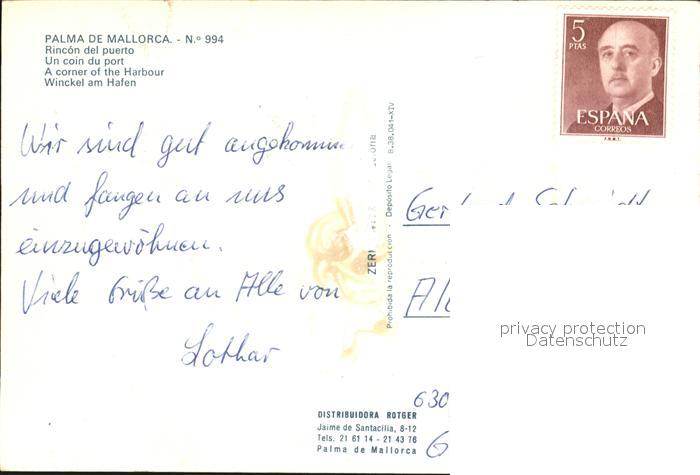 PALMA DE MALLORCA. - N.º 994
Rincón del puerto
Un coin du port
A corner of the Harbour
Winckel am Hafen
5
PTAS
ESPAÑA
CORREOS
F.N.M.T.
Wir sind gut angekommen
und fangen an uns
einzugewöhnen.
Viele Grüße an Alle von
Lothar
Prohibida la reproducción - Depósito Legal B.38.041-XIV
privacy protection
Datenschutz
630
DISTRIBUIDORA ROTGER
Jaime de Santacilia, 8-12
Tels. 21 61 14 - 21 43 76
Palma de Mallorca